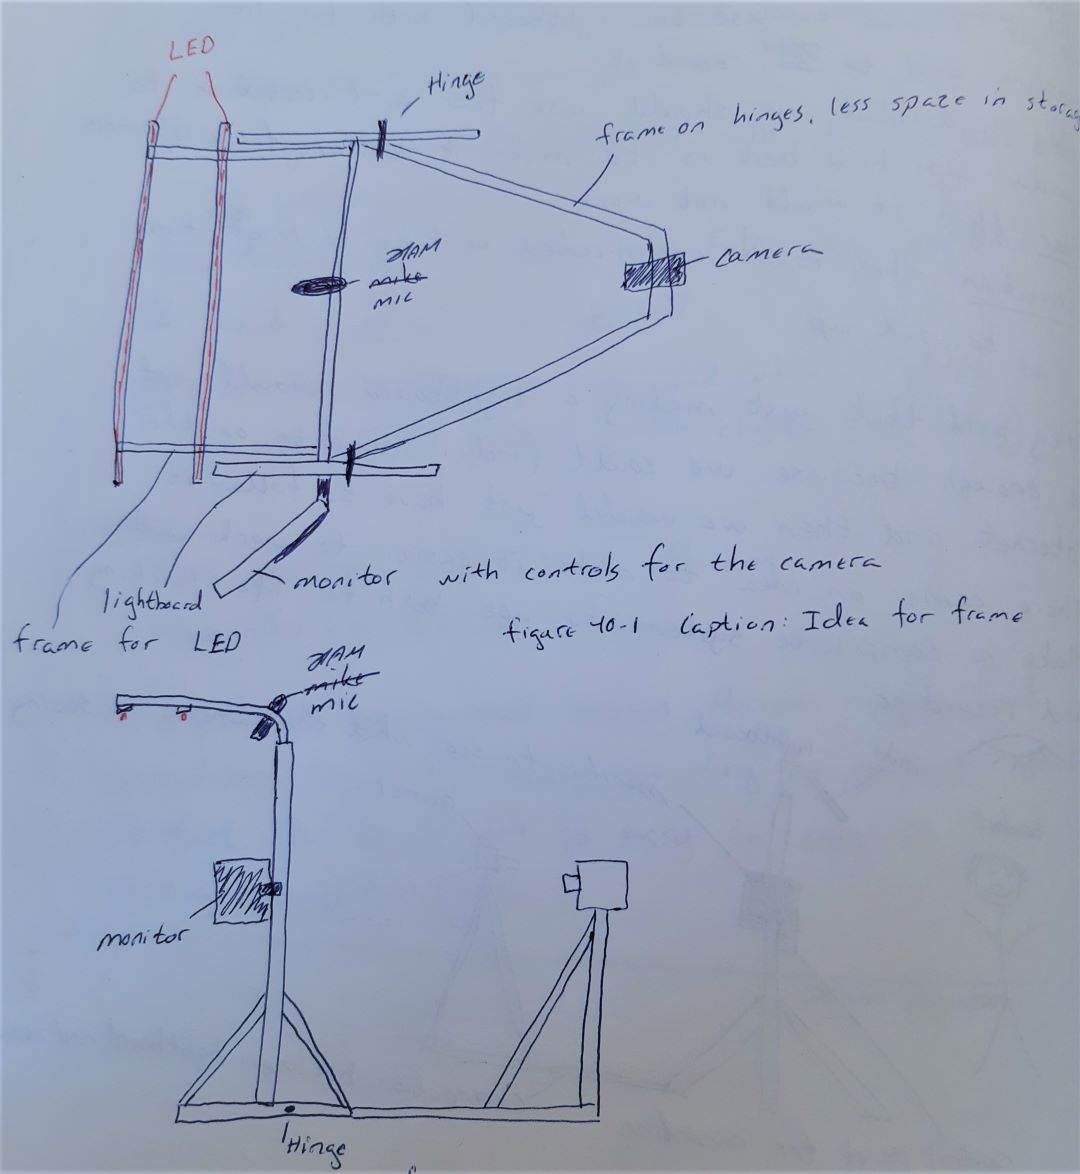 LED
Hinge
frame on hinges, less space in storag
camera
mike
mic
monitor with controls for the camera
lightboard
frame for LED
figure 40-1 Caption: Idea for frame
mike
mic
monitor
Hinge